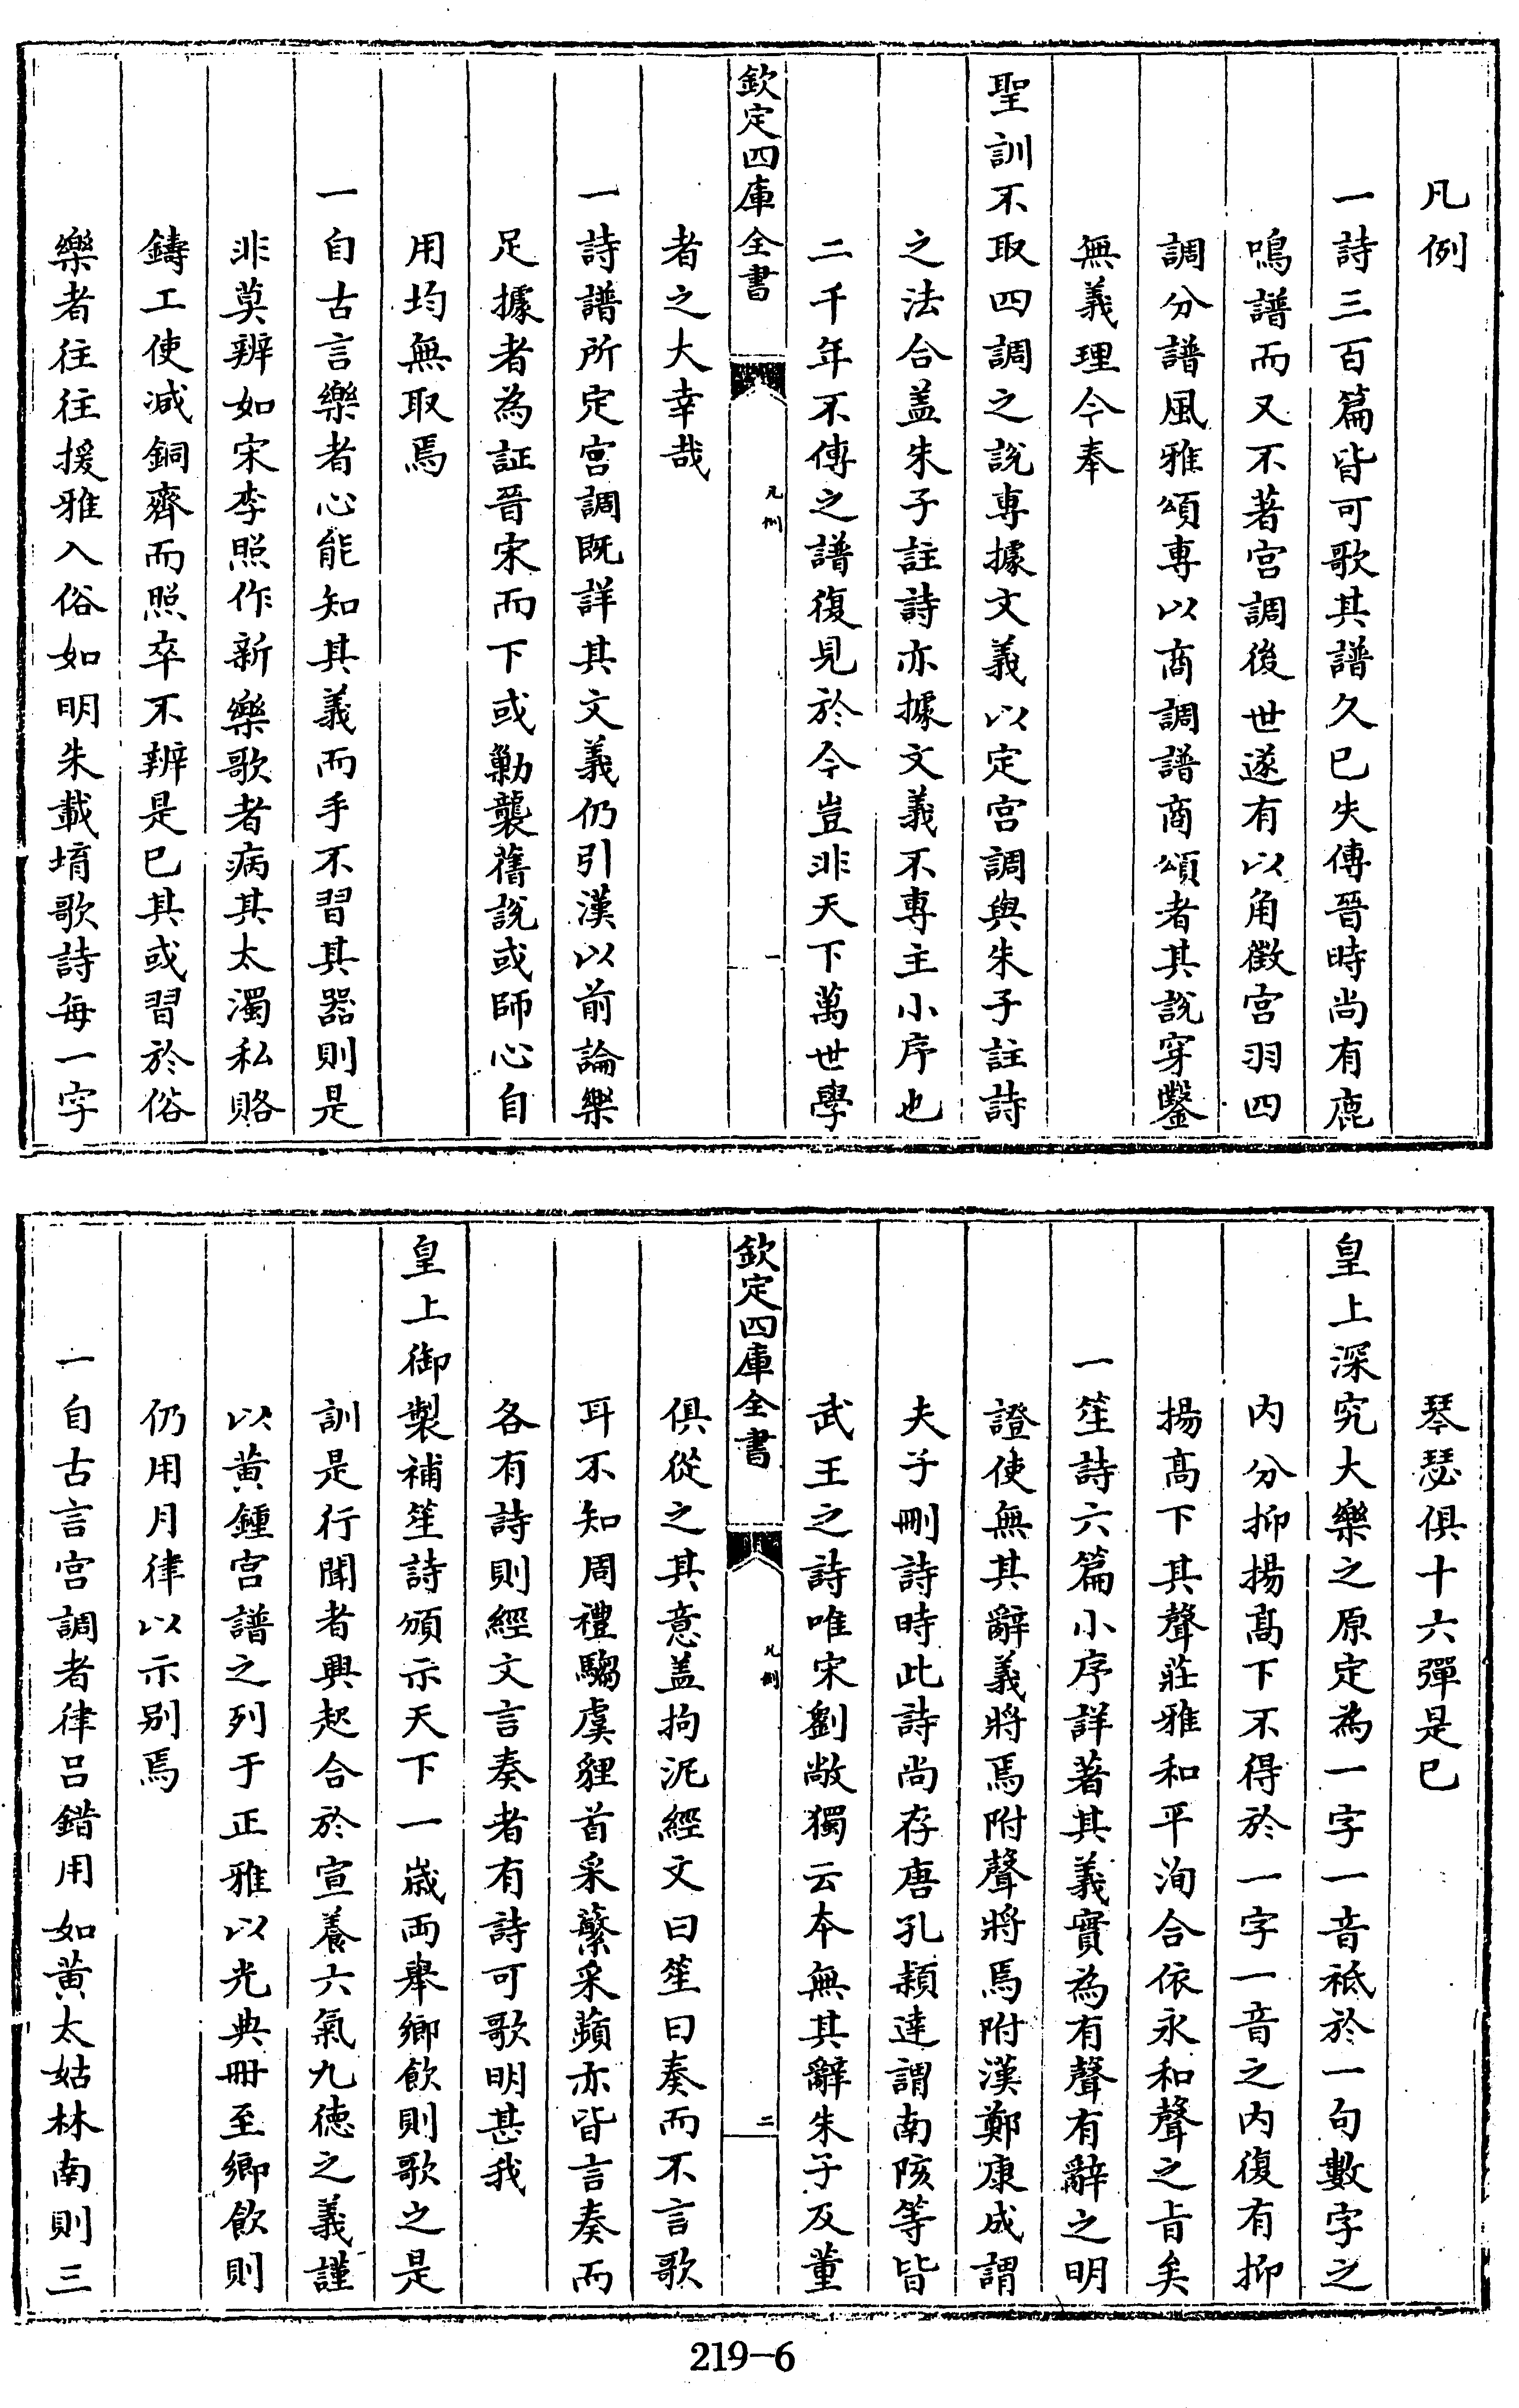 凡例
一詩三百篇皆可歌其譜久已失傳晉時尚有鹿
鳴譜而又不著宮調後世遂有以角徵宮羽四
調分譜風雅頌專以商調譜商頌者其說穿鑿
無義理今奉
聖訓不取四調之說專據文義以定宮調與朱子註詩
之法合盖朱子註詩亦據文義不專主小序也
二千年不傳之譜復見於今豈非天下萬世學
欽定四庫全書
凡例
一
者之大幸哉
一詩譜所定宮調既詳其文義仍引漢以前論樂
足據者為証晉宋而下或勦襲舊說或師心自
用均無取焉
一自古言樂者心能知其義而手不習其器則是
非莫辨如宋李照作新樂歌者病其太濁私賂
鑄工使減銅齊而照卒不辨是已其或習於俗
樂者往往援雅入俗如明朱載堉歌詩每一字
琴瑟俱十六彈是已
皇上深究大樂之原定為一字一音祗於一句數字之
內分抑揚髙下不得於一字一音之內復有抑
揚髙下其聲莊雅和平洵合依永和聲之旨矣
一笙詩六篇小序詳著其義實為有聲有辭之明
證使無其辭義將焉附聲將焉附漢鄭康成謂
夫子刪詩時此詩尚存唐孔穎達謂南陔等皆
武王之詩唯宋劉敞獨云本無其辭朱子及董
欽定四庫全書
凡例
二
俱從之其意盖拘泥經文曰笙曰奏而不言歌
耳不知周禮騶虞貍首采蘩采蘋亦皆言奏而
各有詩則經文言奏者有詩可歌明甚我
皇上御製補笙詩頒示天下一歲兩舉鄉飲則歌之是
訓是行聞者興起合於宣養六氣九德之義謹
以黃鍾宮譜之列于正雅以光典冊至鄉飲則
仍用月律以示别焉
一自古言宮調者律呂錯用如黃太姑林南則三
219-6